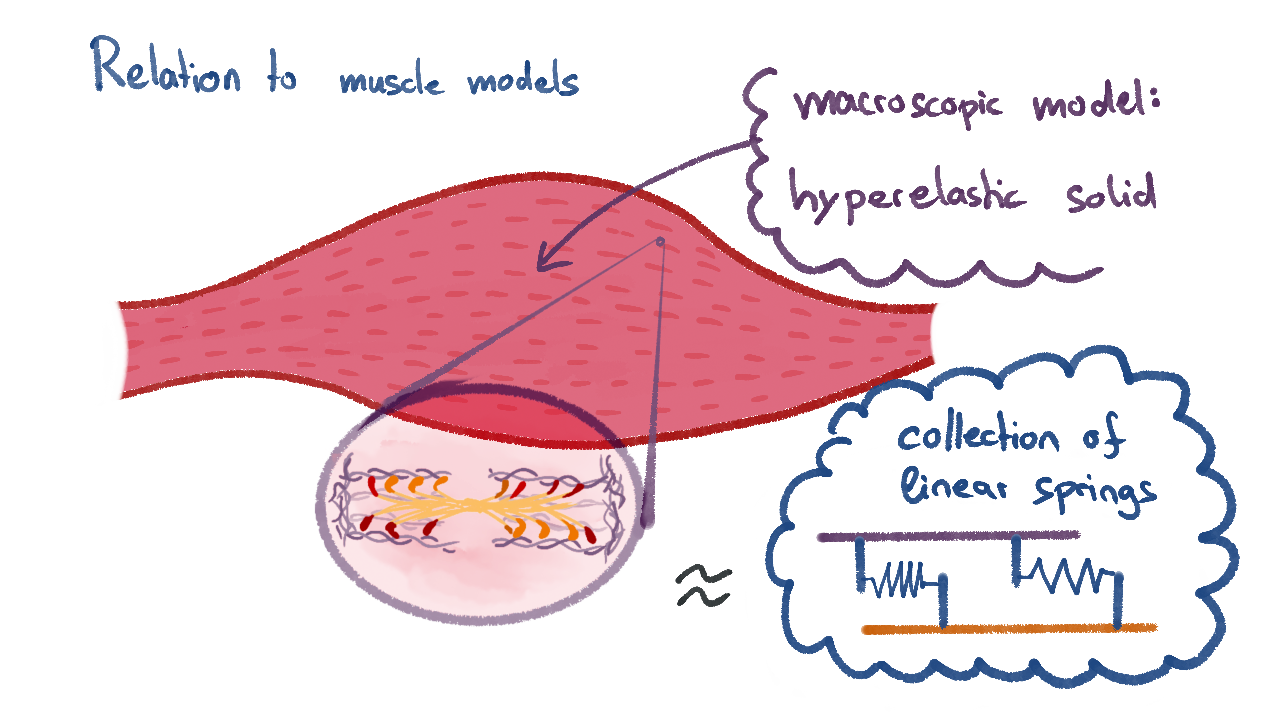 Relation to muscle models
macroscopic model:
hyperelastic solid
collection of
linear springs
≈